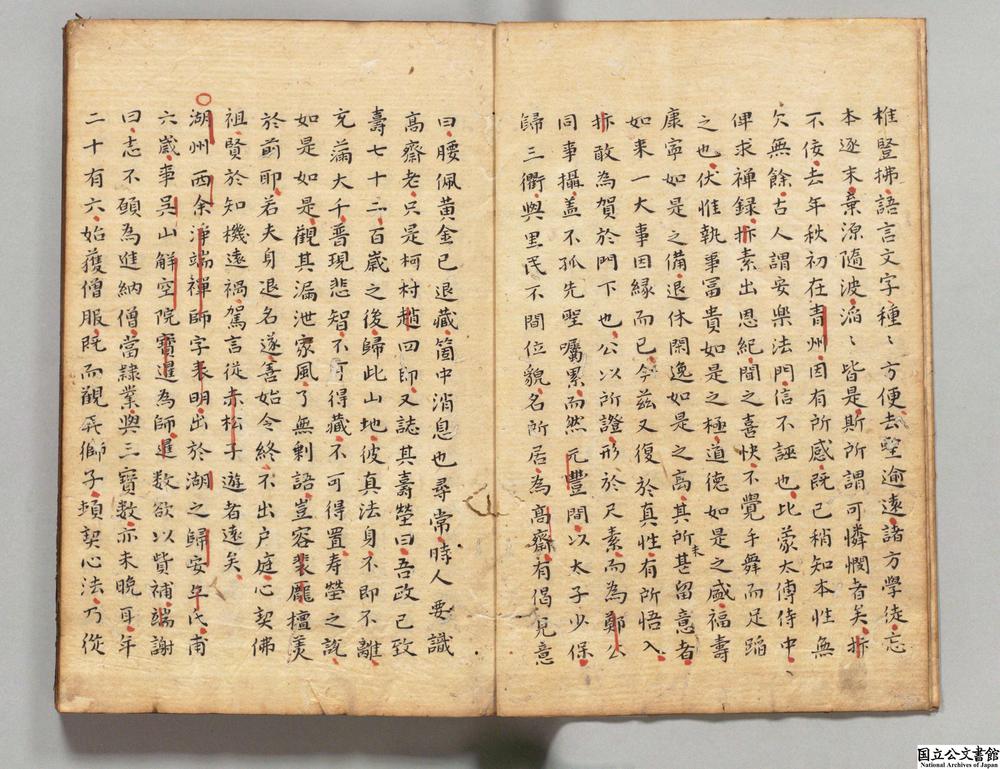 椎豎拂語言文字種〻方便去聖逾遠諸方學徒忘
本逐末棄源隨波滔〻皆是斯所謂可憐憫者矣抃
不佞去年秋初在青州因有所感既已稍知本性無
欠無餘古人謂安樂法門信不誣也比蒙太傅侍中
俾求禅録抃素出恩紀聞之喜快不覺手舞而足蹈
之也伏惟執事冨貴如是之極道德如是之盛福壽
康寧如是之備退休閑逸如是之高其所甚未留意者
如来一大事因縁而已今兹又復於真性有所悟入
抃敢為賀於門下也公以所證形於尺素而為鄭公
同事攝盖不孤先聖囑累而然元豐間以太子少保
歸三衢與里民不間位貌名所居為髙齋有偈見意
曰腰佩黄金已退藏箇中消息也尋常時人要識
髙齋老只是柯村趙四郎又誌其壽塋曰吾政已致
壽七十二百歲之後歸此山地彼真法身不即不離
充滿大千普現悲智不可得藏不可得置寿塋之説
如是如是觀其漏泄家風了無剰語豈容裴龐擅美
於前耶若夫身退名遂善始令終不出户庭心契佛
祖賢於知機遠禍駕言從赤松子遊者遠矣
湖州西余淨端禪師字表明出於湖之歸安丘氏甫
六歲事吴山解空院寶暹為師進数欲以貲補端謝
曰志不願為進納僧當隷業與三寶数亦未晩耳年
二十有六始獲僧服既而觀弄獅子頓契心法乃從
国立公文書館
National Archives of Japan